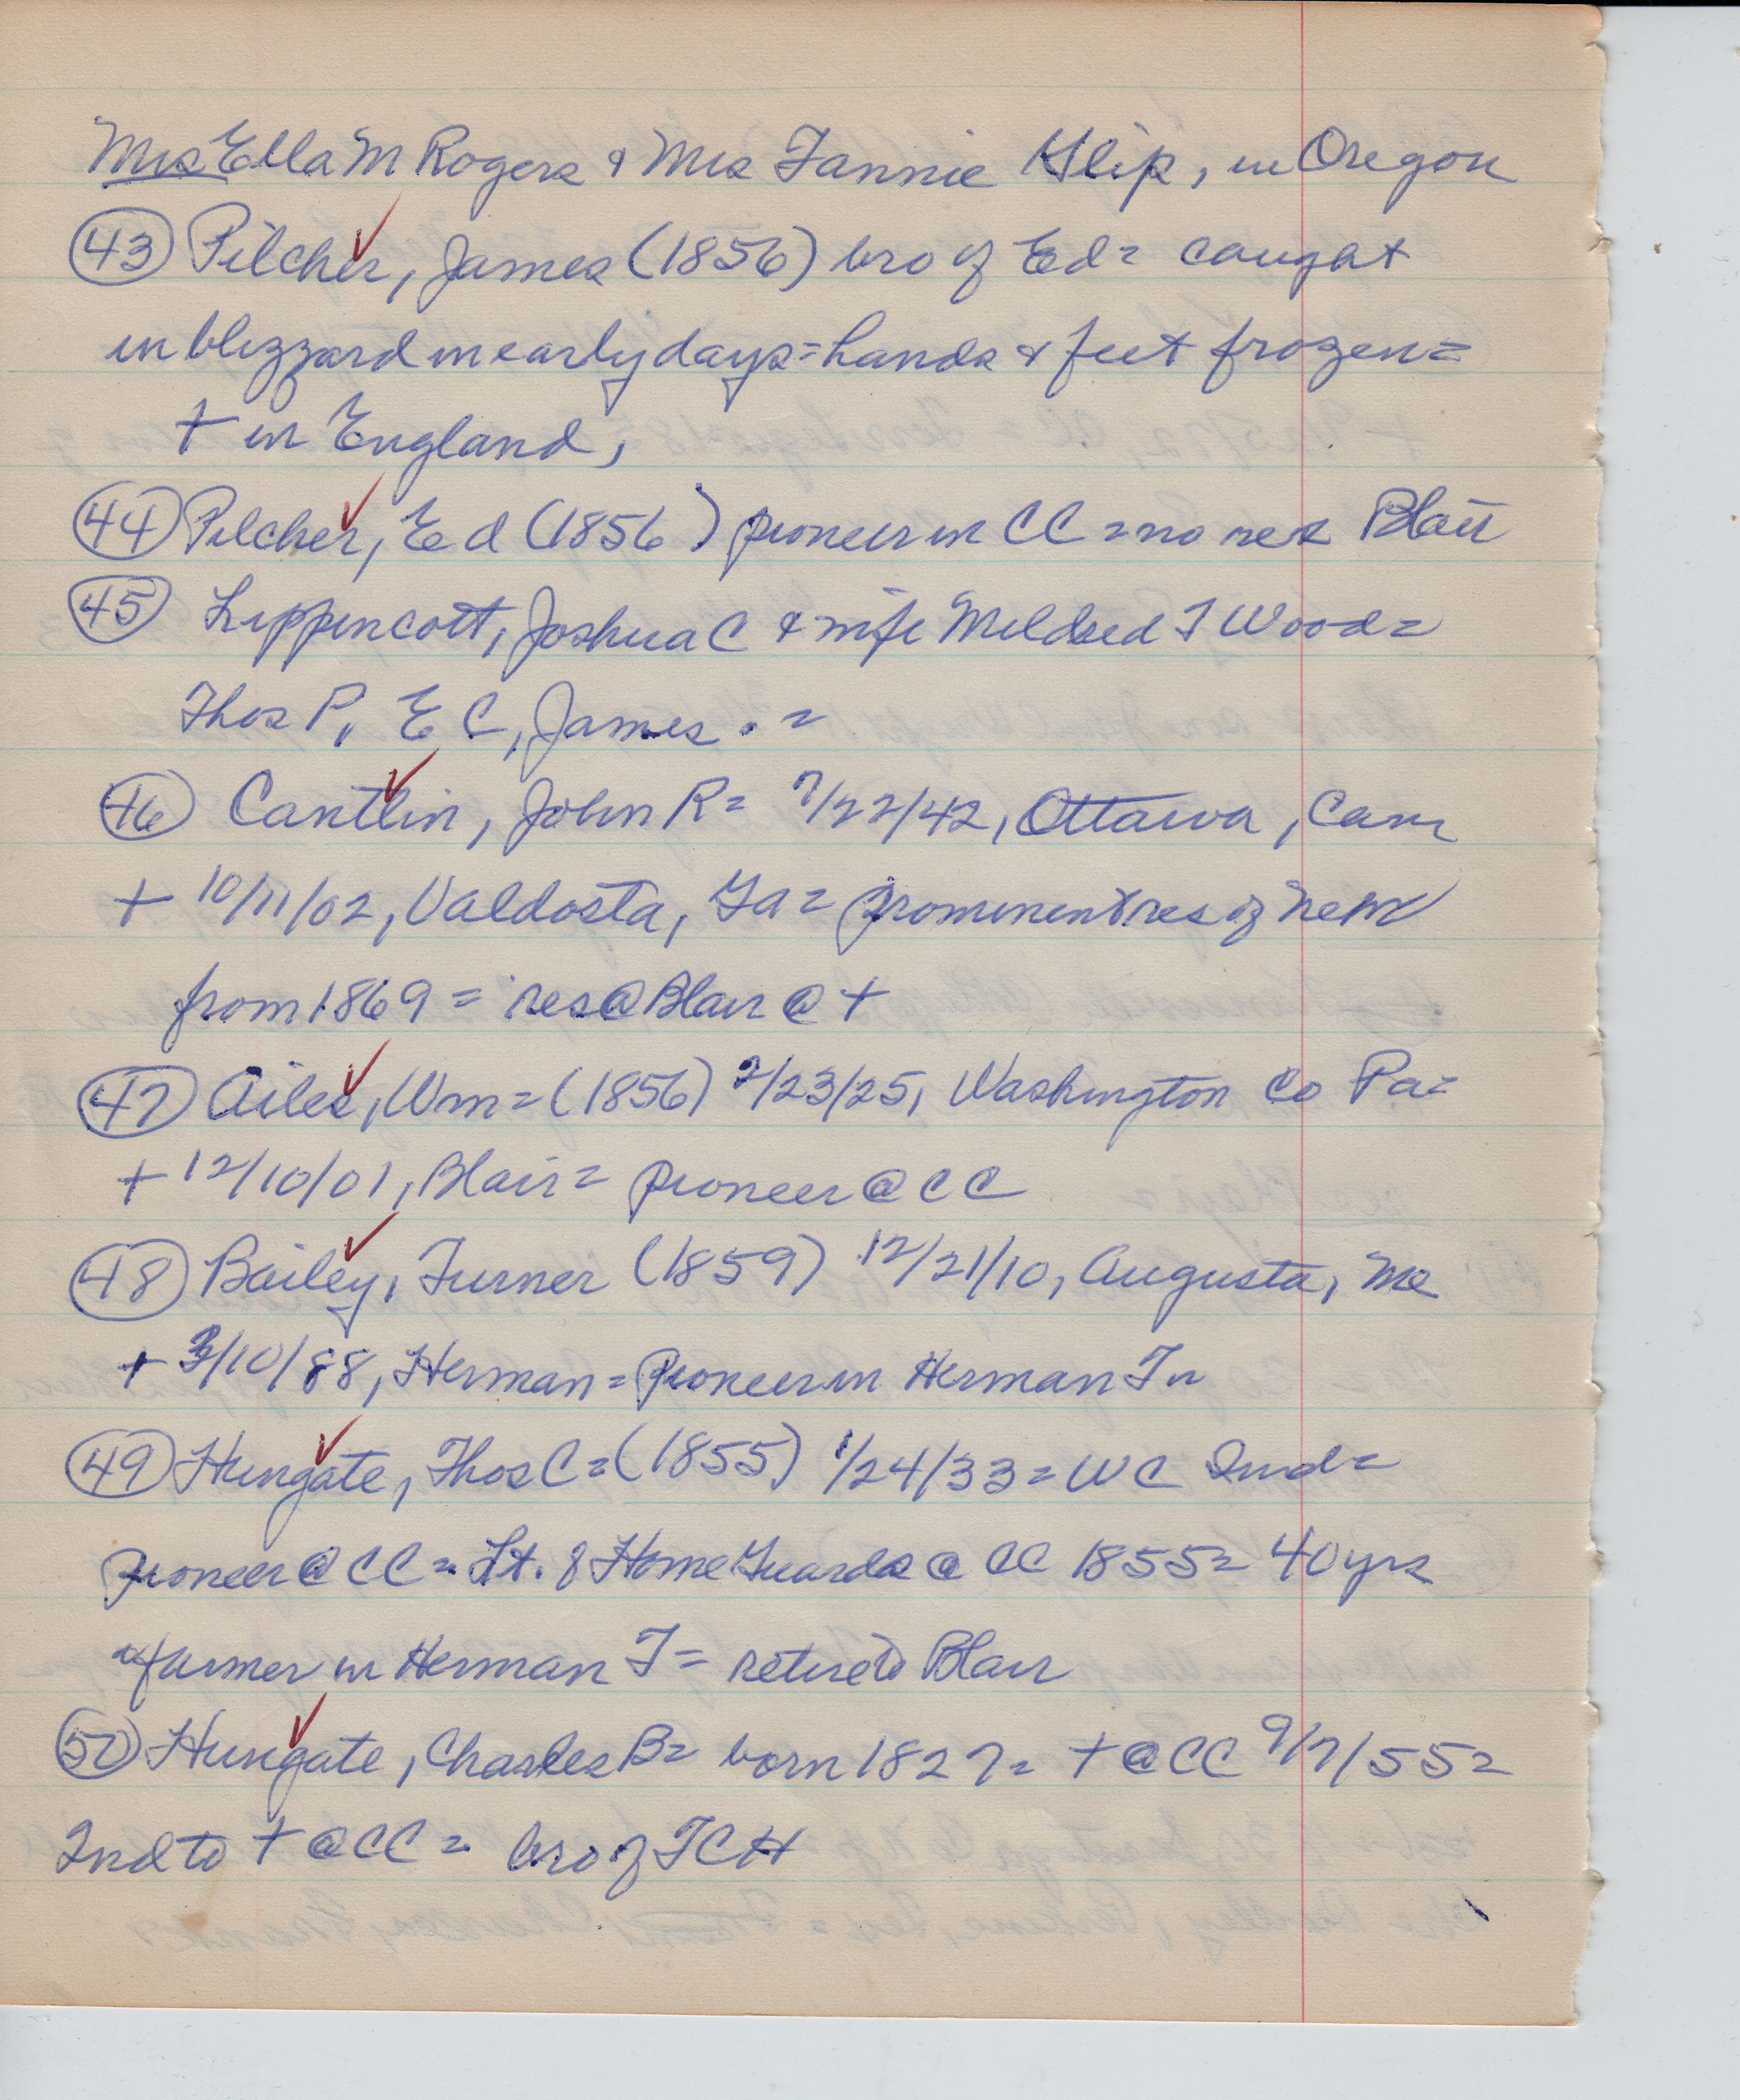 Mrs Ella M Rogers & Mrs Fannie Slip, in Oregon
43 Pilcher, James (1856) bro of Ed= caught
in blizzard in early days= hands & feet frozen=
+ in England,
44 Pilcher, Ed (1856) pioneer in CC = no res Blair
45 Lippencott, Joshua C & wife Mildred T Wood=
Thos P, E C, James . =
46 Cantlin, John R= 7/22/42, Ottawa, Can
+ 10/11/02, Valdosta, Ga= prominent res of
from 1869 = res @ Blair @ +
47 Ailes, Wm= (1856) 2/23/25, Washington Co Pa=
+ 12/10/01, Blair= pioneer @ CC
48 Bailey, Turner (1859) 12/21/10, Augusta, Me
+ /10/88, Herman= Pioneer in Herman Tn
49 Hungate, Thos C= (1855) 1/24/33= WC Ind=
pioneer @ CC= Lt. of Home Guards @ CC 1855= 40 yrs
a farmer in Herman T= retired to Blair
50 Hungate, Charles B= born 1827= + @ CC 9/7/55=
2nd to + @ CC= bro of TCH